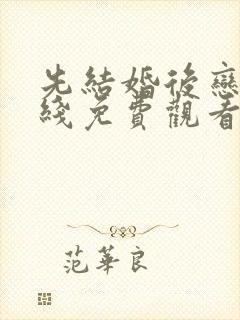 先結婚後戀
綫免費觀看
范華良